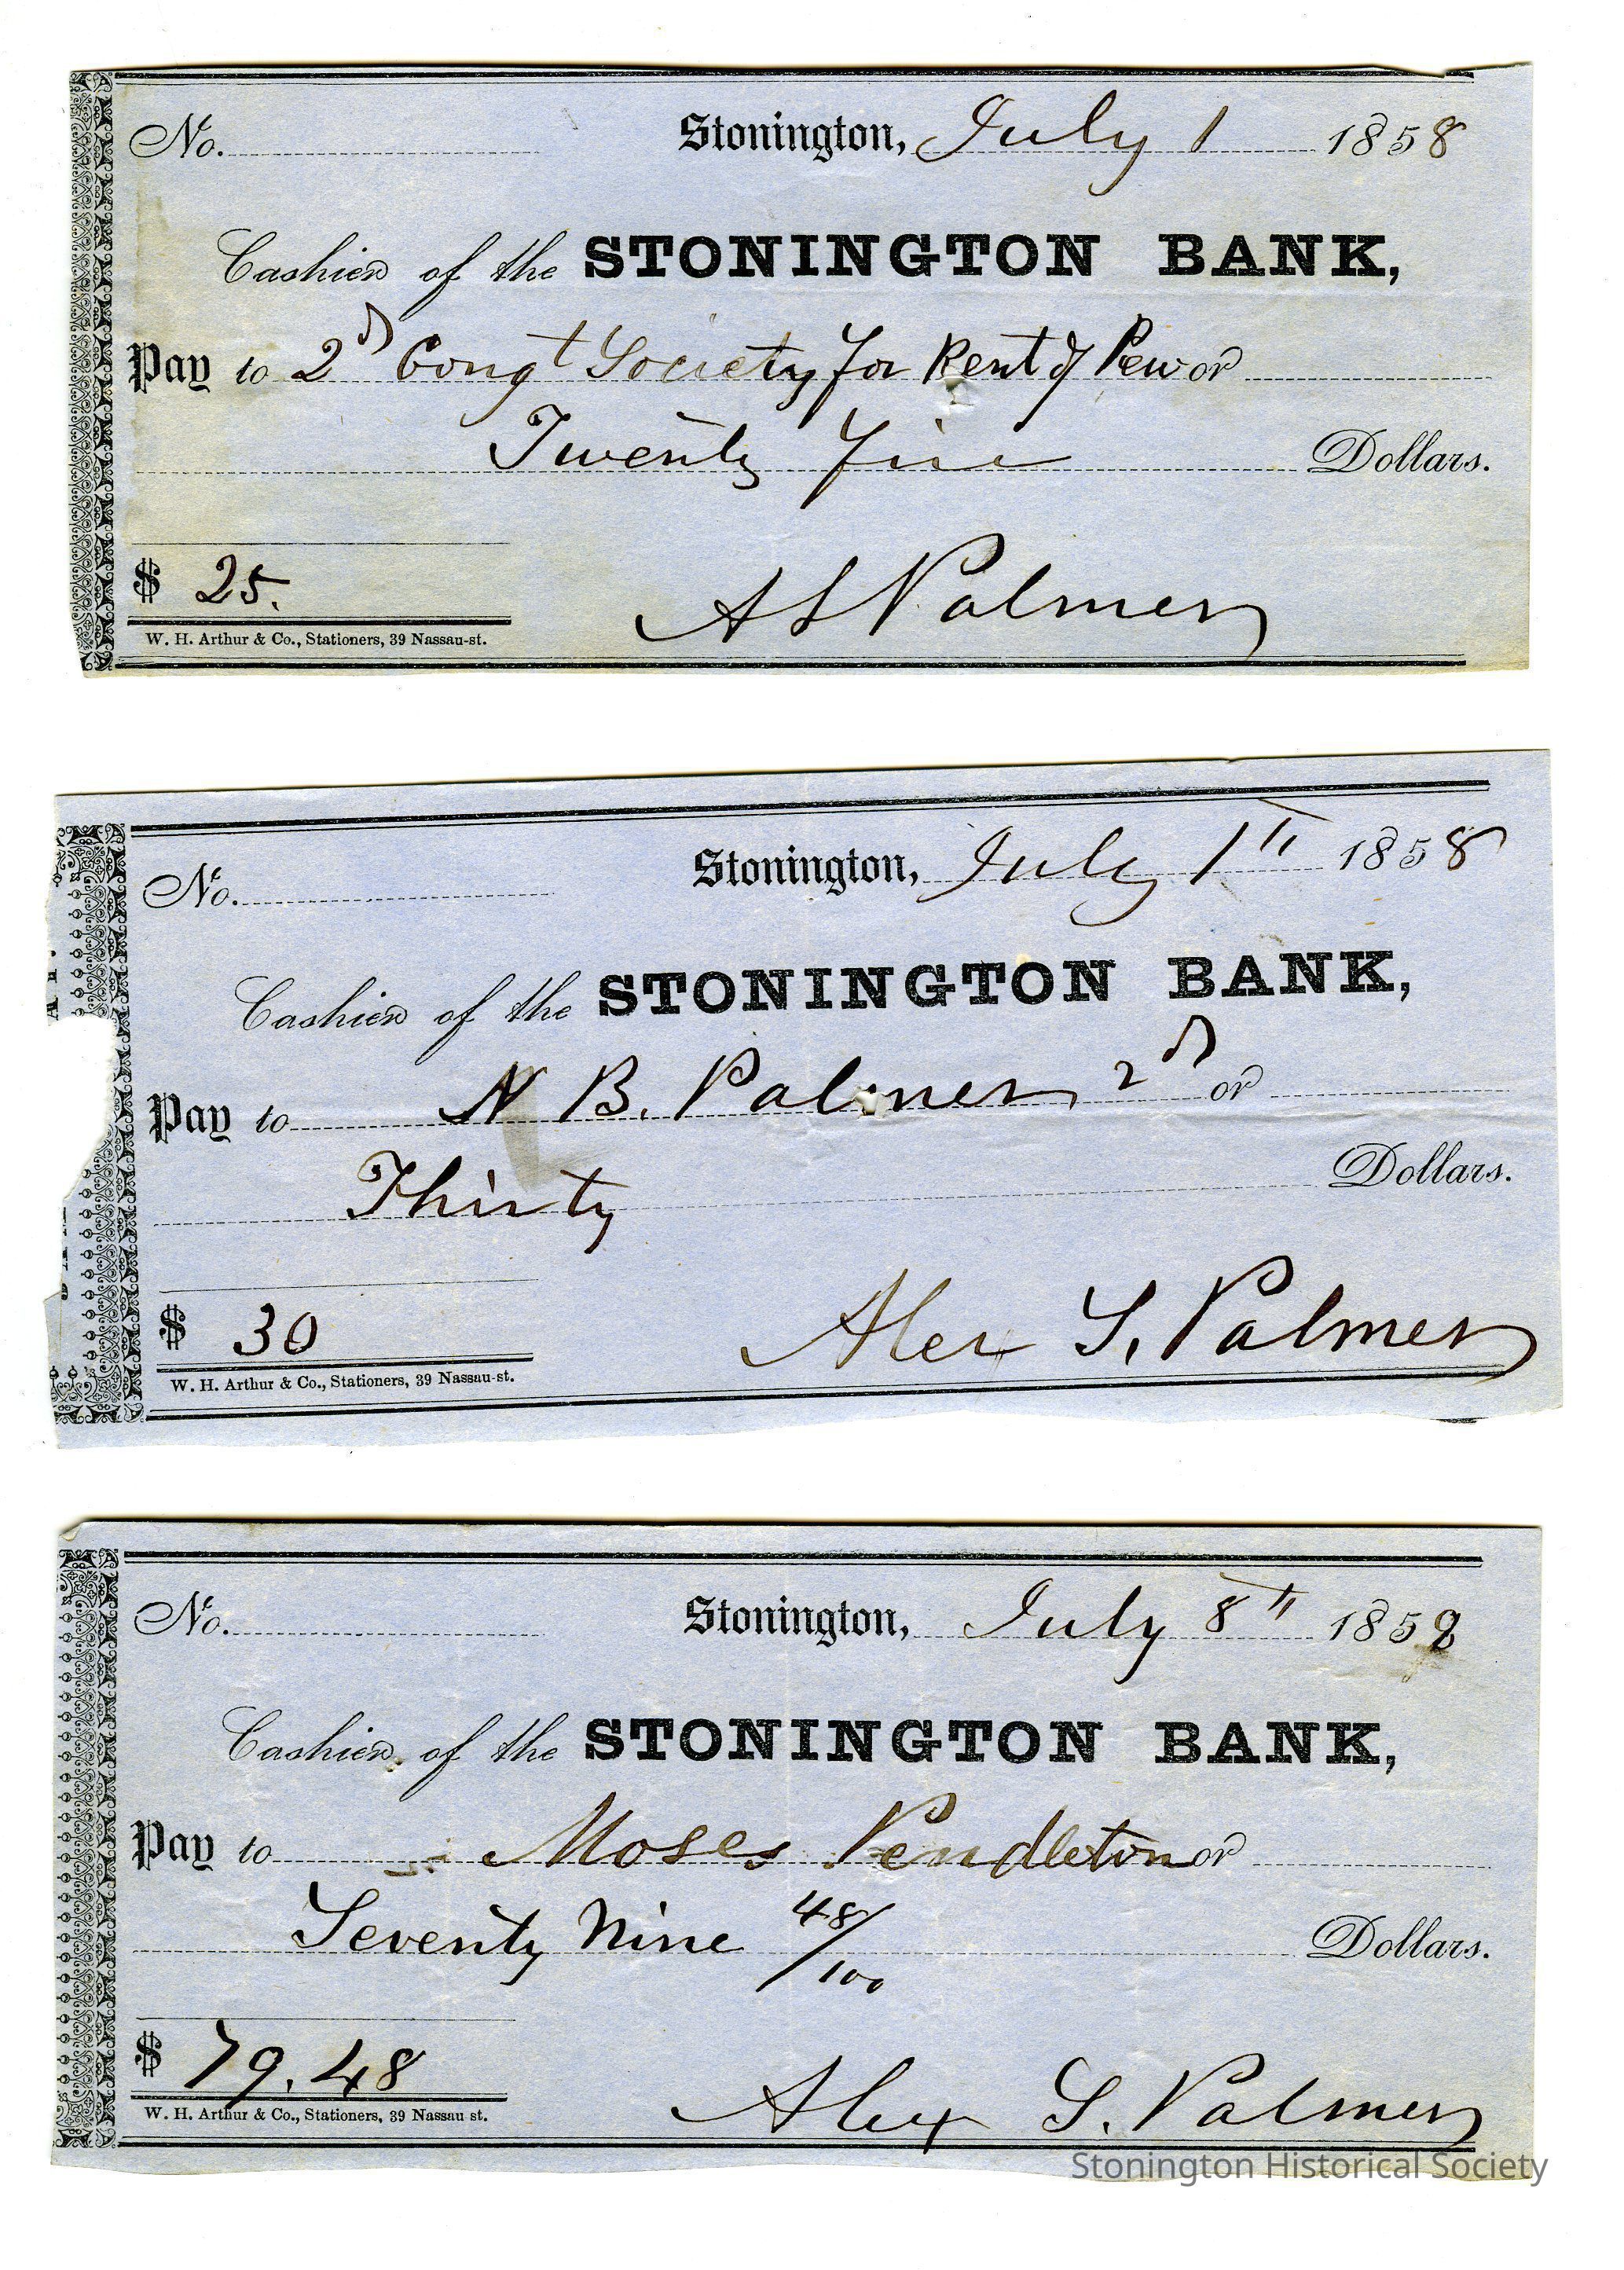 No. Stonington, July 1 1858
Cashier of the STONINGTON BANK,
Pay to 2d Congt Society for Rent of Pew or
Twenty Five Dollars.
$ 25.
A S Palmer
W. H. Arthur & Co., Stationers, 39 Nassau-st.
No. Stonington, July 1" 1858
Cashier of the STONINGTON BANK,
Pay to N B. Palmer 2d or
Thirty Dollars.
$ 30
Alex S. Palmer
W. H. Arthur & Co., Stationers, 39 Nassau-st.
No. Stonington, July 8" 1858
Cashier of the STONINGTON BANK,
Pay to Moses Pendleton or
Seventy Nine 48/100 Dollars.
$ 79.48
Alex S. Palmer
W. H. Arthur & Co., Stationers, 39 Nassau st.
Stonington Historical Society